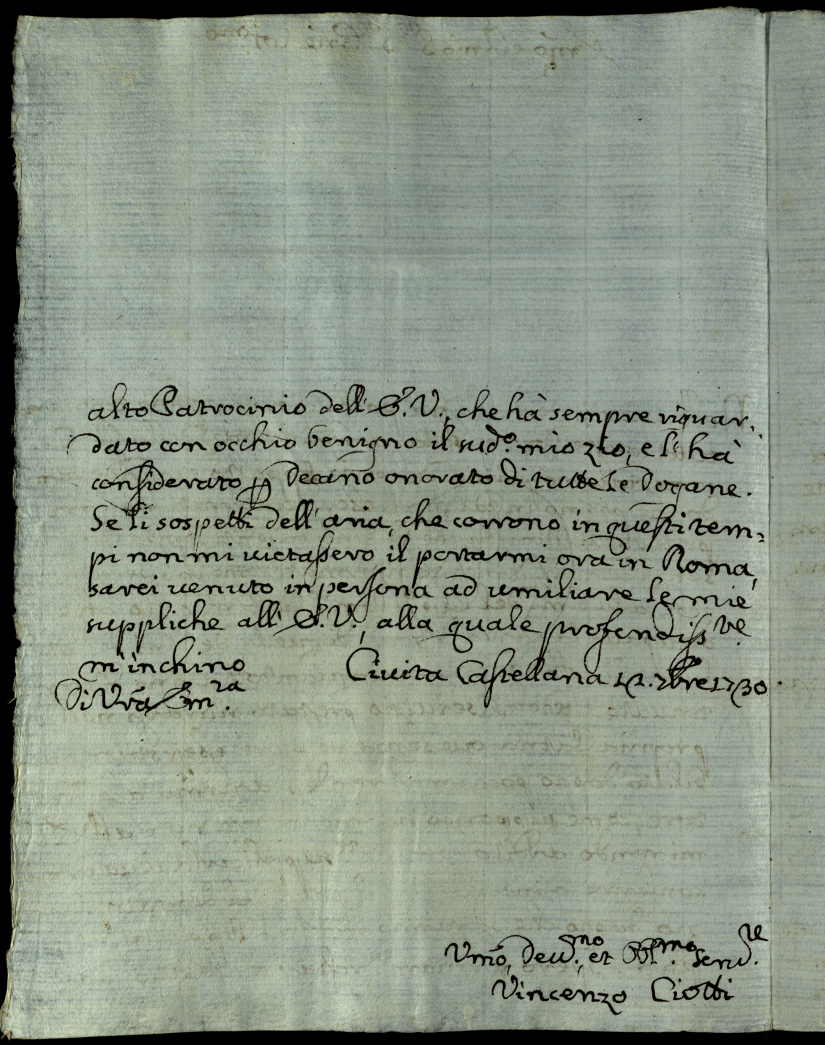 alto Patrocinio dell' E.V., che hà sempre riguar-
dato con occhio benigno il sud.º mio zio, e l'hà
considerato p Decano onorato di tutte le Dogane.
Se li sospetti dell'aria, che corrono in questi tem-
pi non mi vietassero il portarmi ora in Roma,
sarei venuto in persona ad umiliare le mie
suppliche all' E.V., alla quale profondiss.ve
m'inchino Civita Castellana 12. 7bre 1730.
Di Vrã Em.za
Vmõ, Dev.mo et Obl.mo Serv.re
Vincenzo Ciotti